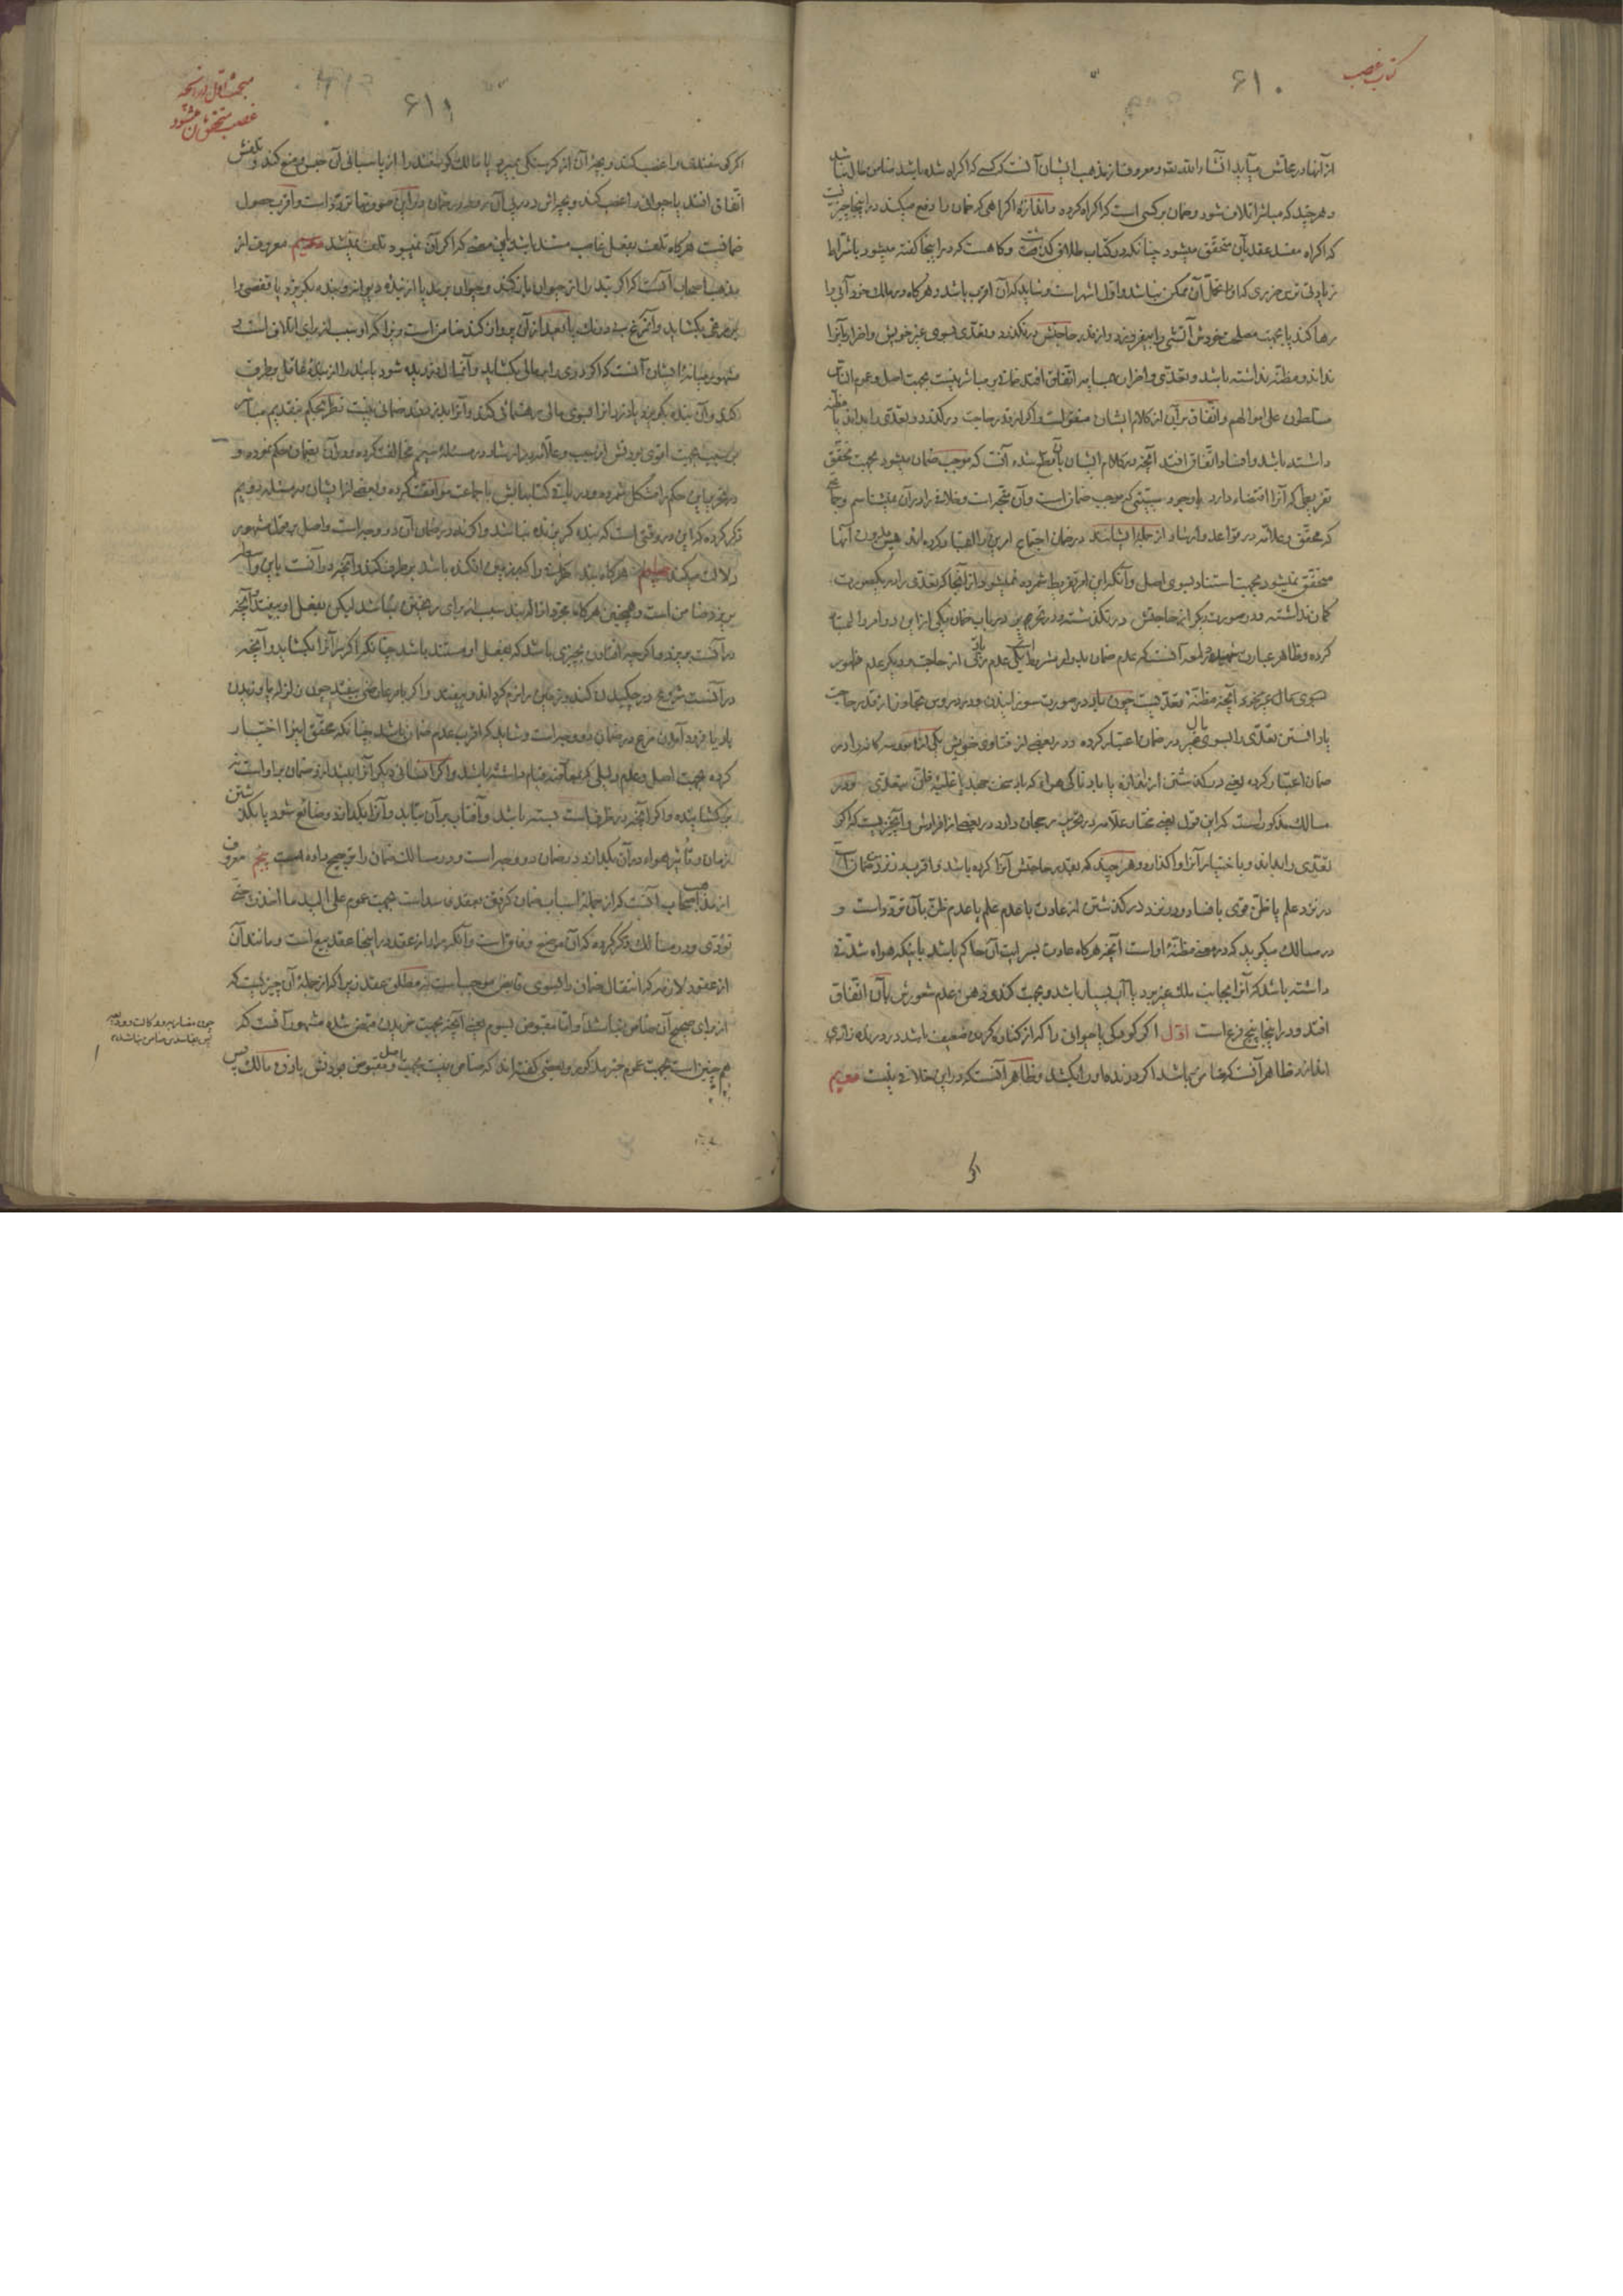 کتاب غصب
۶۱۰
از آنها در محالش میآید انشاء الله تعالی و معروف از مذهب ایشان آنست که کسی که اکراه شده باشد ضامن مال نباشد
و هر چند که مباشر اتلاف شود و ضمان بر کسی است که اکراه کرده و اندازه اکراهی که ضمان را دفع میکند در اینجا چیزیست
که اکراه مفسد عقد بآن متحقق میشود چنانکه در کتاب طلاق گذشت و گاهست که در اینجا گفته میشود باشتراط
زیادتی ترس ضرری که او را تحمل آن ممکن نباشد و اول اشهر است و شاید که آن اقرب باشد و هرگاه در ملک خود آبی را
رها کند یا بجهت مصلحت خودش آتشی را بیفروزد و از قدر حاجتش در نگذرد و تعدی بسوی غیر خویش و اضرار بآنرا
نداند و مظنه نداشته باشد و تعدی و اضرار بحسب اتفاق افتد ضمان بر مباشر نیست بجهت اصل و عموم الناس
مسلطون علی اموالهم و اتفاق بر آن از کلام ایشان مستفاد است و اگر از قدر حاجت در گذرد و تعدی را بداند یا مظنه
داشته باشد و افساد اتفاق افتد آنچه در کلام ایشان بآن قطع شده آنست که موجب ضمان میشود بجهت تحقق
تفریطی که آنرا اقتضاء دارد با وجود سببیتی که موجب ضمان است و آن متجه است و خلاف را در آن نمیشناسم و جماعتی
که محقق و علامه در قواعد و ارشاد از جمله ایشانند در ضمان اجتماع امرین را اعتبار کرده‌اند پس بدون آنها
متحقق نمیشود بجهت استناد بسوی اصل و آنکه این امر تفریط شمرده نمیشود از آنجا که تعدی را در یکصورت
گمان نداشته و در صورت دیگر از حاجتش در نگذشته و در تحریر در باب ضمان بیکی از این دو امر اکتفا
کرده و ظاهر عبارت شهید در لمعه آنست که عدم ضمان بدو امر مشروط است یکی عدم زیادتی از حاجت و دیگر عدم ظهور
سوی مال غیر بجهت آنچه مظنه تعدیست چون باد در صورت سوزانیدن و در دروس تجاوز از قدر حاجت
یا دانستن تعدی را بسوی مال غیر در ضمان اعتبار کرده و در بعضی از فتاوی خویش یکی از امور سه گانه را در
ضمان اعتبار کرده یعنی در گذشتن از اندازه یا باد ناکی هوا که باد سخت جهد یا غلبه ظن بتعدی و در
مسالک مذکور است که این قول یعنی مختار علامه در تحریر رجحان دارد در بعضی از افرادش و آنچیزیست که اگر
تعدی را بداند و باختیار آنرا واگذارد و هر چند که بقدر حاجتش آنرا کرده باشد و اقرب در نزد من ضمان است
در نزد علم یا ظن قوی بافساد و در نزد در گذشتن از عادت با عدم علم یا عدم ظن بآن تردد است و
در مسالک میگوید که در معنی مظنه او است آنچه هرگاه عادت بسرایت آن حاکم باشد باینکه هواء شدتی
داشته باشد که آنرا بجانب ملک غیر برد یا آب بسیار باشد و بجهت کندی ذهن عدم شعورش بآن اتفاق
افتد و در اینجا پنج فرع است اول اگر کودکی یا حیوانی را که از کنار کردن ضعیف باشد در درنده زاری
اندازد ظاهر آنست که ضامن باشد اگر درنده او را بکشد و ظاهر آنست که در این خلافی نیست دویم
اگر
۶۱۱
مبحث اول در آنچه
غصب متحقق بآن میشود
اگر گوسفندی را غصب کند و بچه آن از گرسنگی بمیرد یا مالک گوسفند را از پاسبانی آن حبس و منع کند و تلفش
اتفاق افتد یا حیوانی را غصب کند و بچه‌اش در پی آن رود در ضمان در این صورتها تردد است و اقرب حصول
ضمانست هرگاه تلف بفعل غاصب مستند باشد باین معنی که اگر آن نمیبود تلف نمیشد سیم معروف از
مذهب اصحاب آنست که اگر بند را از حیوان باز کند و حیوان برمد یا از بنده دیوانه و بنده بگریزد یا قفسی را
بر مرغی بگشاید و آنمرغ بی درنگ یا بعد از آن پرواز کند ضامن است زیرا که او سبب از برای اتلاف است و
مشهور میانه ایشان آنست که اگر دری را بر مالی بگشاید و آنمال دزدیده شود یا بند را از بنده عاقل برطرف
کند و آن بنده بگریزد یا دزد را بسوی مالی رهنمائی کند و آنرا بدزدد ضمانی نیست نظر بحکم بتقدیم مباشر
بر سبب بجهت اقوی بودنش از سبب و علامه در ارشاد در مسئله سیم مخالفت کرده و در آن بضمان حکم نموده و
در تحریر این حکم را مشکل شمرده و در باقی کتابهایش با جماعت موافقت کرده و بعضی از ایشان در مسئله دویم
ذکر کرده که این در وقتی است که بنده گریزنده نباشد و اگر نه در ضمان آن دو وجه است و اصل بر قول مشهور
دلالت میکند چهارم هرگاه بند ظرفی را که بر زمین افکنده باشد برطرف کند و آنچه در آنست باین واسطه
بریزد ضامن است و همچنین هرگاه مجرد ازاله بند سبب از برای ریختن نباشد لیکن بفعل او بیفتد و آنچه
در آنست بریزد و اگر چه افتادن بچیزی باشد که بفعل او مستند باشد چنانکه اگر سر آنرا بگشاید و آنچه
در آنست شروع در چکیدن کند و زمین را نرم گرداند و بیفتد و اگر بامر عارضی بیفتد چون زلزله یا وزیدن
باد یا فرود آمدن مرغ در ضمان دو وجه است و شاید که اقرب عدم ضمان باشد چنانکه محقق اینرا اختیار
کرده بجهت اصل و عدم دلیلی که بمقاومتش قیام داشته باشد و اگر انسانی دیگر آنرا بیندازد ضمان بر او است نه
بر گشاینده و اگر آنچه در ظرف است بسته باشد و آفتاب بر آن بتابد و آنرا بگدازد و ضایع شود یا بگذشتن
زمان و تأثیر هواء در آن بگدازد در ضمان دو وجه است و در مسالک ضمان را ترجیح داده است پنجم معروف
از مذهب اصحاب آنست که از جمله اسباب ضمان گرفتن بعقد فاسد است بجهت عموم علی الید ما اخذت حتی
تؤدی و در مسالک ذکر کرده که آن موضع وفاق است و آنکه مراد از عقد در اینجا عقد بیع است و مانند آن
از عقود لازمه که انتقال ضمان را بسوی قابض موجب است نه مطلق عقد زیرا که از جمله آن چیزیست که
از برای صحیح آن ضامن نباشد و اما مقبوض بسوم یعنی آنچه بجهت خریدن متصرف شده مشهور آنست که
هم چنین است بجهت عموم خبر مذکور و بعضی گفته‌اند که ضامن نیست بجهت اصل و مقبوض بودنش باذن مالک پس
چون مضاربه و وکالت و ودیعه
پس بفاسدش ضامن نباشد